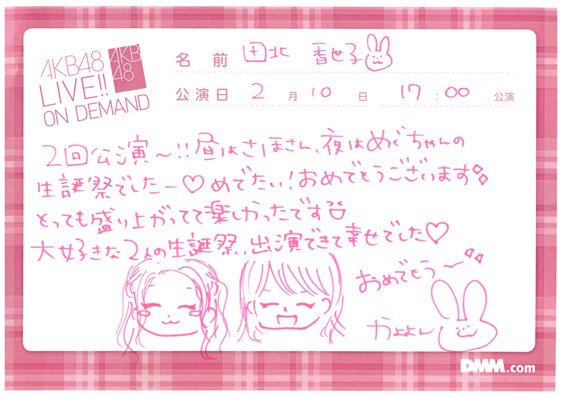 AKB48
LIVE!!
ON DEMAND
AKB
48
名前 田北 香世子
公演日 2月10日 17:00 公演
2回公演〜!!昼はさほさん、夜はめぐちゃんの
生誕祭でしたー♡めでたい!おめでとうございます
とっても盛り上がってて楽しかったです
大好きな2人の生誕祭、出演できて幸せでした♡
おめでとう〜
かよよん
DMM.com